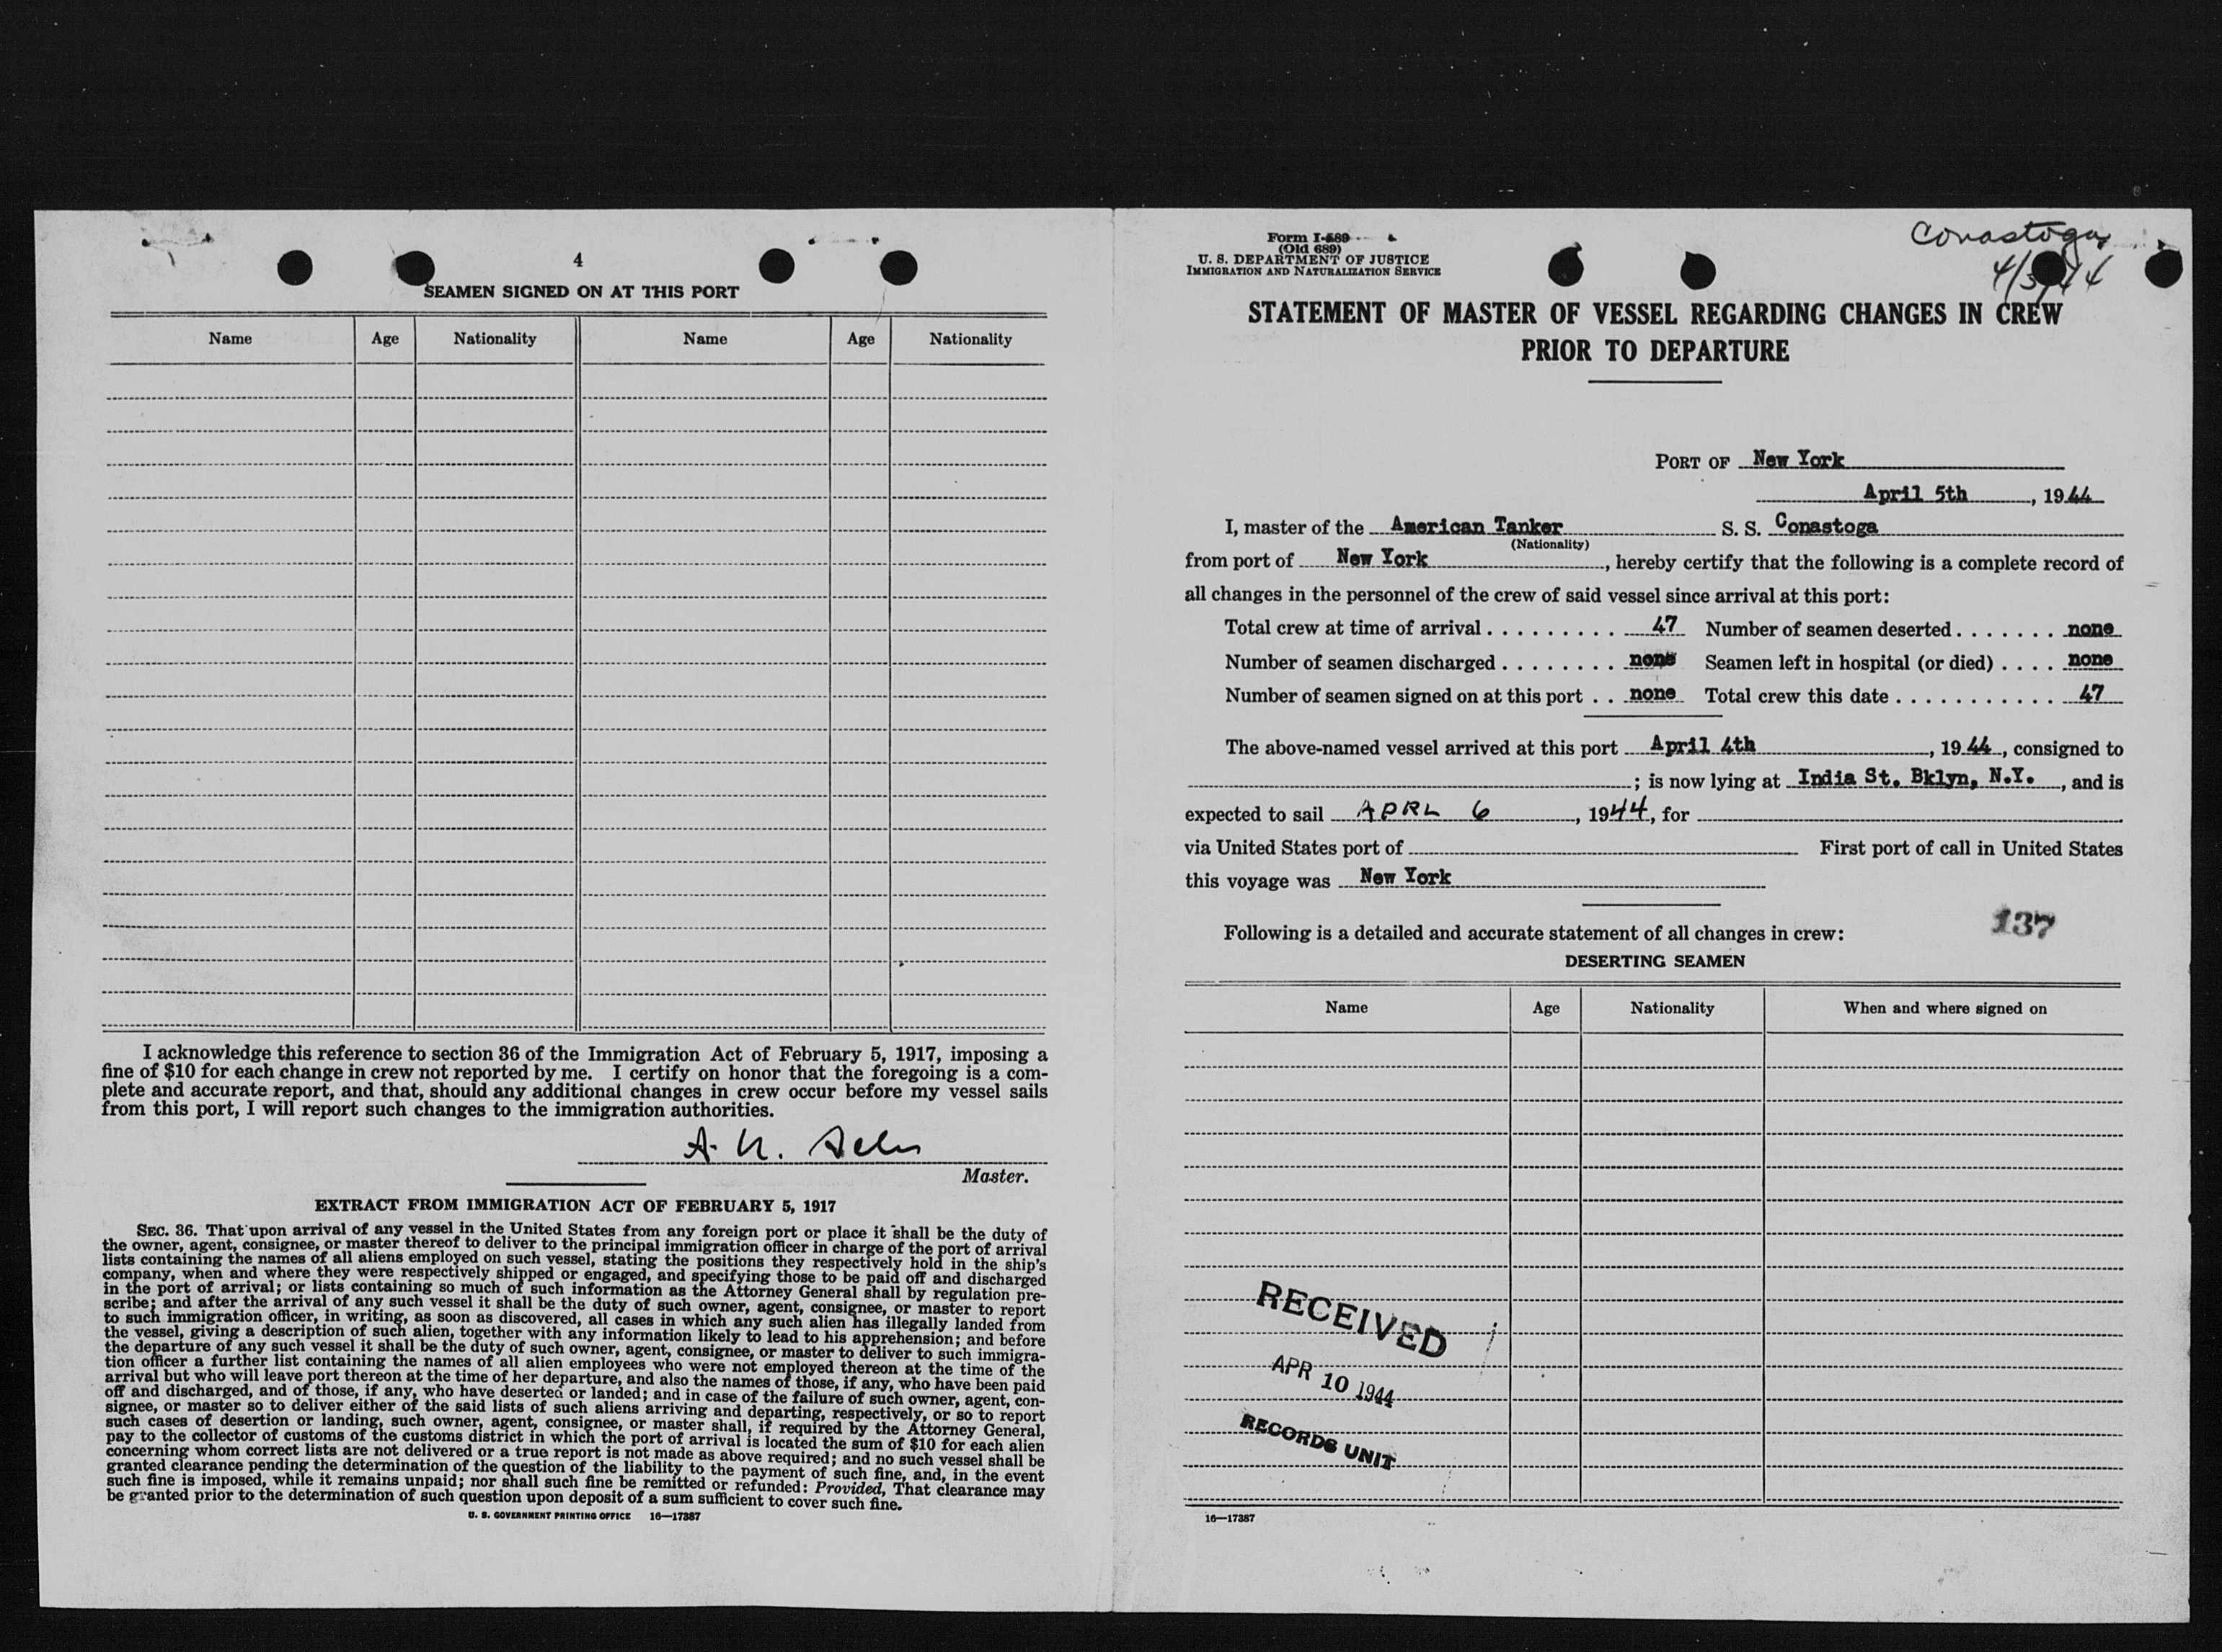 4
SEAMEN SIGNED ON AT THIS PORT
Name Age Nationality Name Age Nationality
I acknowledge this reference to section 36 of the Immigration Act of February 5, 1917, imposing a
fine of $10 for each change in crew not reported by me. I certify on honor that the foregoing is a com-
plete and accurate report, and that, should any additional changes in crew occur before my vessel sails
from this port, I will report such changes to the immigration authorities.
A.
Master.
EXTRACT FROM IMMIGRATION ACT OF FEBRUARY 5, 1917
SEC. 36. That upon arrival of any vessel in the United States from any foreign port or place it shall be the duty of
the owner, agent, consignee, or master thereof to deliver to the principal immigration officer in charge of the port of arrival
lists containing the names of all aliens employed on such vessel, stating the positions they respectively hold in the ship's
company, when and where they were respectively shipped or engaged, and specifying those to be paid off and discharged
in the port of arrival; or lists containing so much of such information as the Attorney General shall by regulation pre-
scribe; and after the arrival of any such vessel it shall be the duty of such owner, agent, consignee, or master to report
to such immigration officer, in writing, as soon as discovered, all cases in which any such alien has illegally landed from
the vessel, giving a description of such alien, together with any information likely to lead to his apprehension; and before
the departure of any such vessel it shall be the duty of such owner, agent, consignee, or master to deliver to such immigra-
tion officer a further list containing the names of all alien employees who were not employed thereon at the time of the
arrival but who will leave port thereon at the time of her departure, and also the names of those, if any, who have been paid
off and discharged, and of those, if any, who have deserted or landed; and in case of the failure of such owner, agent, con-
signee, or master so to deliver either of the said lists of such aliens arriving and departing, respectively, or so to report
such cases of desertion or landing, such owner, agent, consignee, or master shall, if required by the Attorney General,
pay to the collector of customs of the customs district in which the port of arrival is located the sum of $10 for each alien
concerning whom correct lists are not delivered or a true report is not made as above required; and no such vessel shall be
granted clearance pending the determination of the question of the liability to the payment of such fine, and, in the event
such fine is imposed, while it remains unpaid; nor shall such fine be remitted or refunded: Provided, That clearance may
be granted prior to the determination of such question upon deposit of a sum sufficient to cover such fine.
U. S. GOVERNMENT PRINTING OFFICE 16—17387
Form I-689
(Old 689)
U. S. DEPARTMENT OF JUSTICE
IMMIGRATION AND NATURALIZATION SERVICE
Conastoga
4/5/44
STATEMENT OF MASTER OF VESSEL REGARDING CHANGES IN CREW
PRIOR TO DEPARTURE
PORT OF New York
April 5th, 1944
I, master of the American Tanker S. S. Conastoga
(Nationality)
from port of New York, hereby certify that the following is a complete record of
all changes in the personnel of the crew of said vessel since arrival at this port:
Total crew at time of arrival . . . . . . . . . 47 Number of seamen deserted . . . . . . . none
Number of seamen discharged . . . . . . . . none Seamen left in hospital (or died) . . . . none
Number of seamen signed on at this port . . none Total crew this date . . . . . . . . . . . 47
The above-named vessel arrived at this port April 4th, 1944, consigned to
; is now lying at India St. Bklyn, N.Y., and is
expected to sail APRL 6, 1944, for
via United States port of First port of call in United States
this voyage was New York
137
Following is a detailed and accurate statement of all changes in crew:
DESERTING SEAMEN
Name Age Nationality When and where signed on
RECEIVED
APR 10 1944
RECORDS UNIT
16—17387